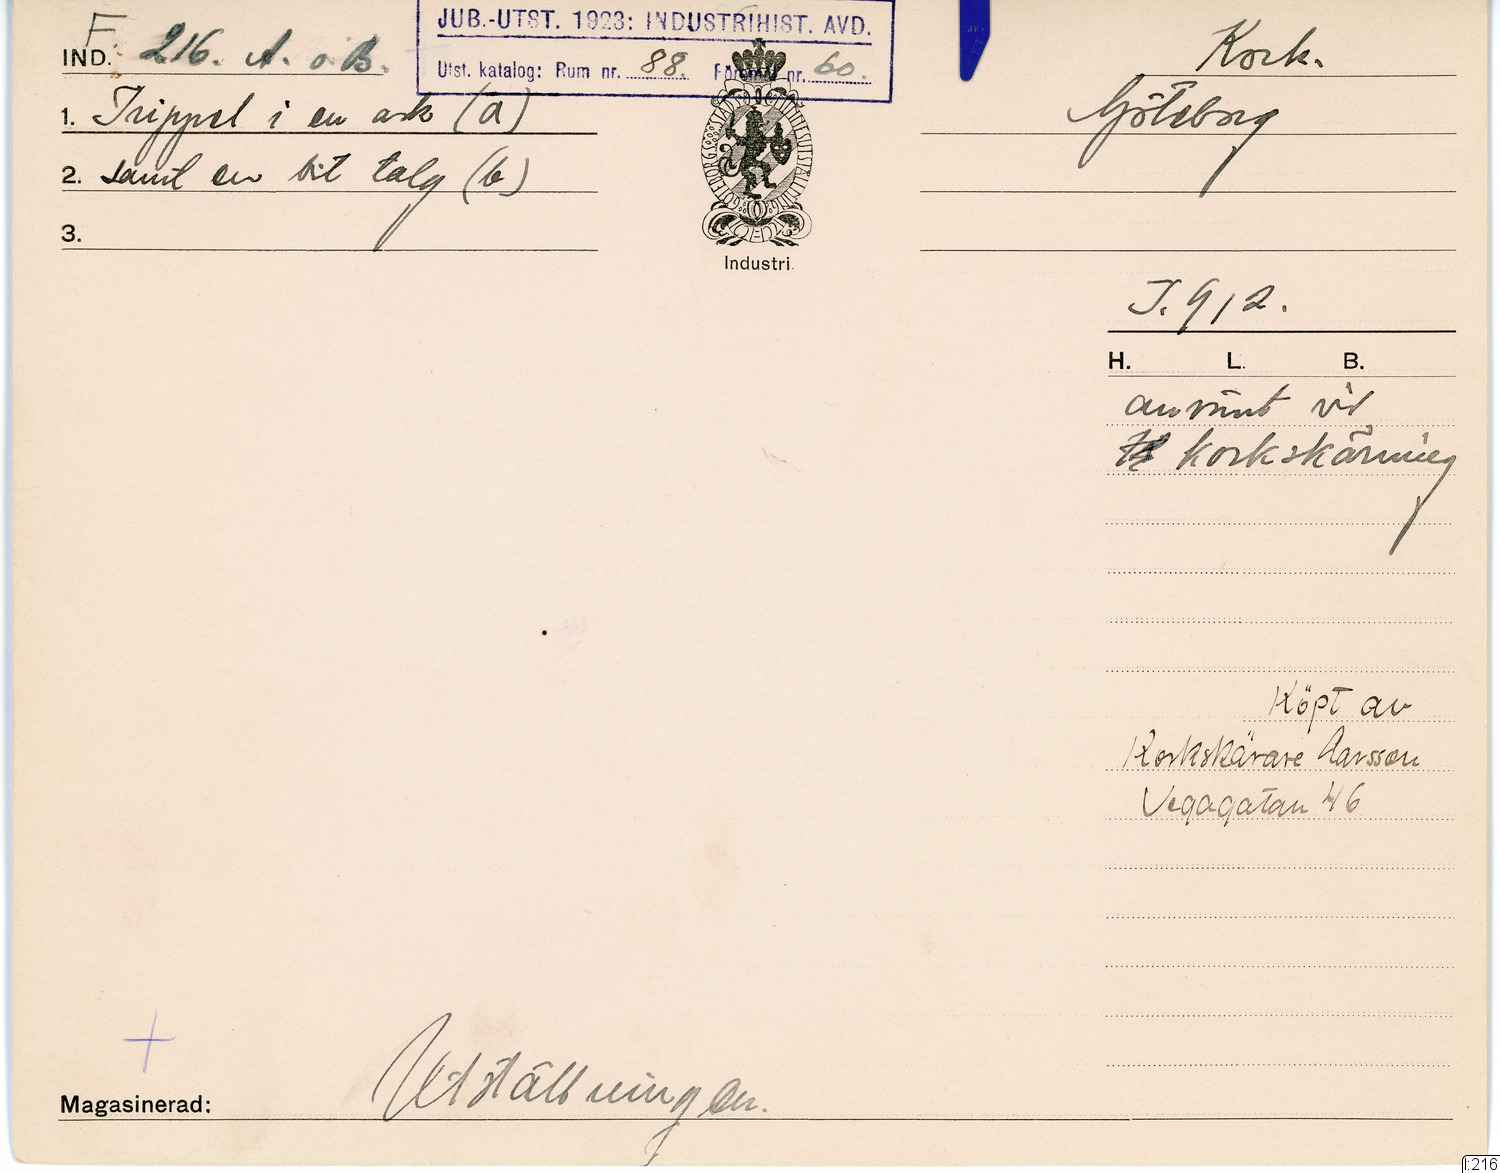 JUB.-UTST. 1923: INDUSTRIHIST. AVD.
Utst. katalog: Rum nr. 88. Föremål nr. 60.
F
IND. 216. A. o. B.
Kork.
Göteborg
1. Trippel i en ask (a)
2. samt en bit talg (b)
3.
GÖTEBORGS STADS JUBILEUMSUTSTÄLLNING
Industri
I. 912.
H. L. B.
använt vid
korkskärning
Köpt av
Korkskärare Larsson
Vegagatan 46
+
Magasinerad: Utställningen.
I:216